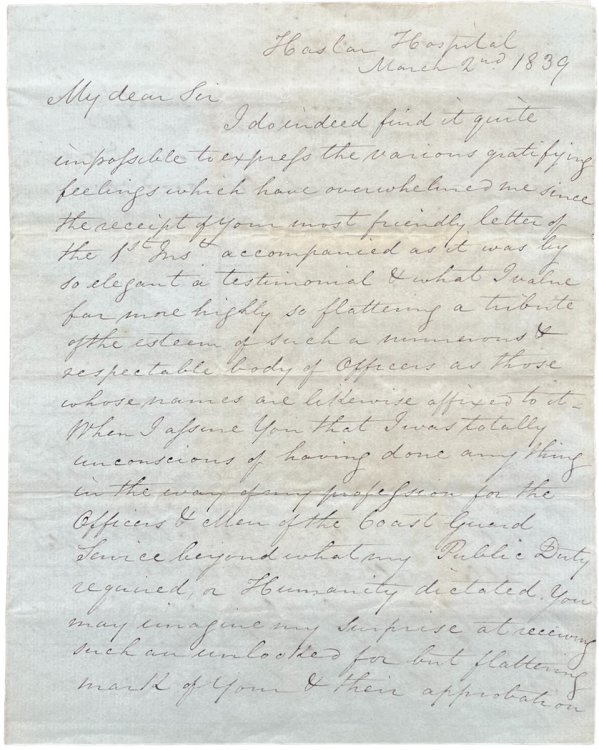 Haslar Hospital
March 2nd 1839
My dear Sir
I do indeed find it quite
impossible to express the various gratifying
feelings which have overwhelmed me since
the receipt of your most friendly letter of
the 1st Inst accompanied as it was by
so elegant a testimonial & what I value
far more highly so flattering a tribute
of the esteem of such a numerous &
respectable body of Officers as those
whose names are likewise affixed to it –
When I assure You that I was totally
unconscious of having done any thing
in the way of my profession for the
Officers & Men of the Coast Guard
Service beyond what my Public Duty
required, or Humanity dictated. You
may imagine my surprise at receiving
such an unlooked for but flattering
mark of Your & their approbation